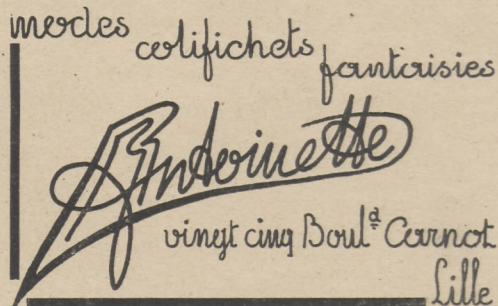 modes
colifichets
fantaisies
Antoinette
vingt cinq Boul<sup>d</sup> Carnot
Lille